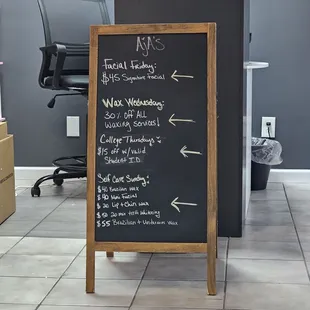 AJA'S
Facial Friday:
$45 Signature facial
Wax Wednesday:
30% off ALL
Waxing services!
College Thursdays:
$15 off w/valid
Student I.D.
Self Care Sunday:
$40 Brazilian Wax
$40 Mini Facial
$20 Lip & Chin Wax
$50 20 min teeth Whitening
$55 Brazilian & Underarm Wax